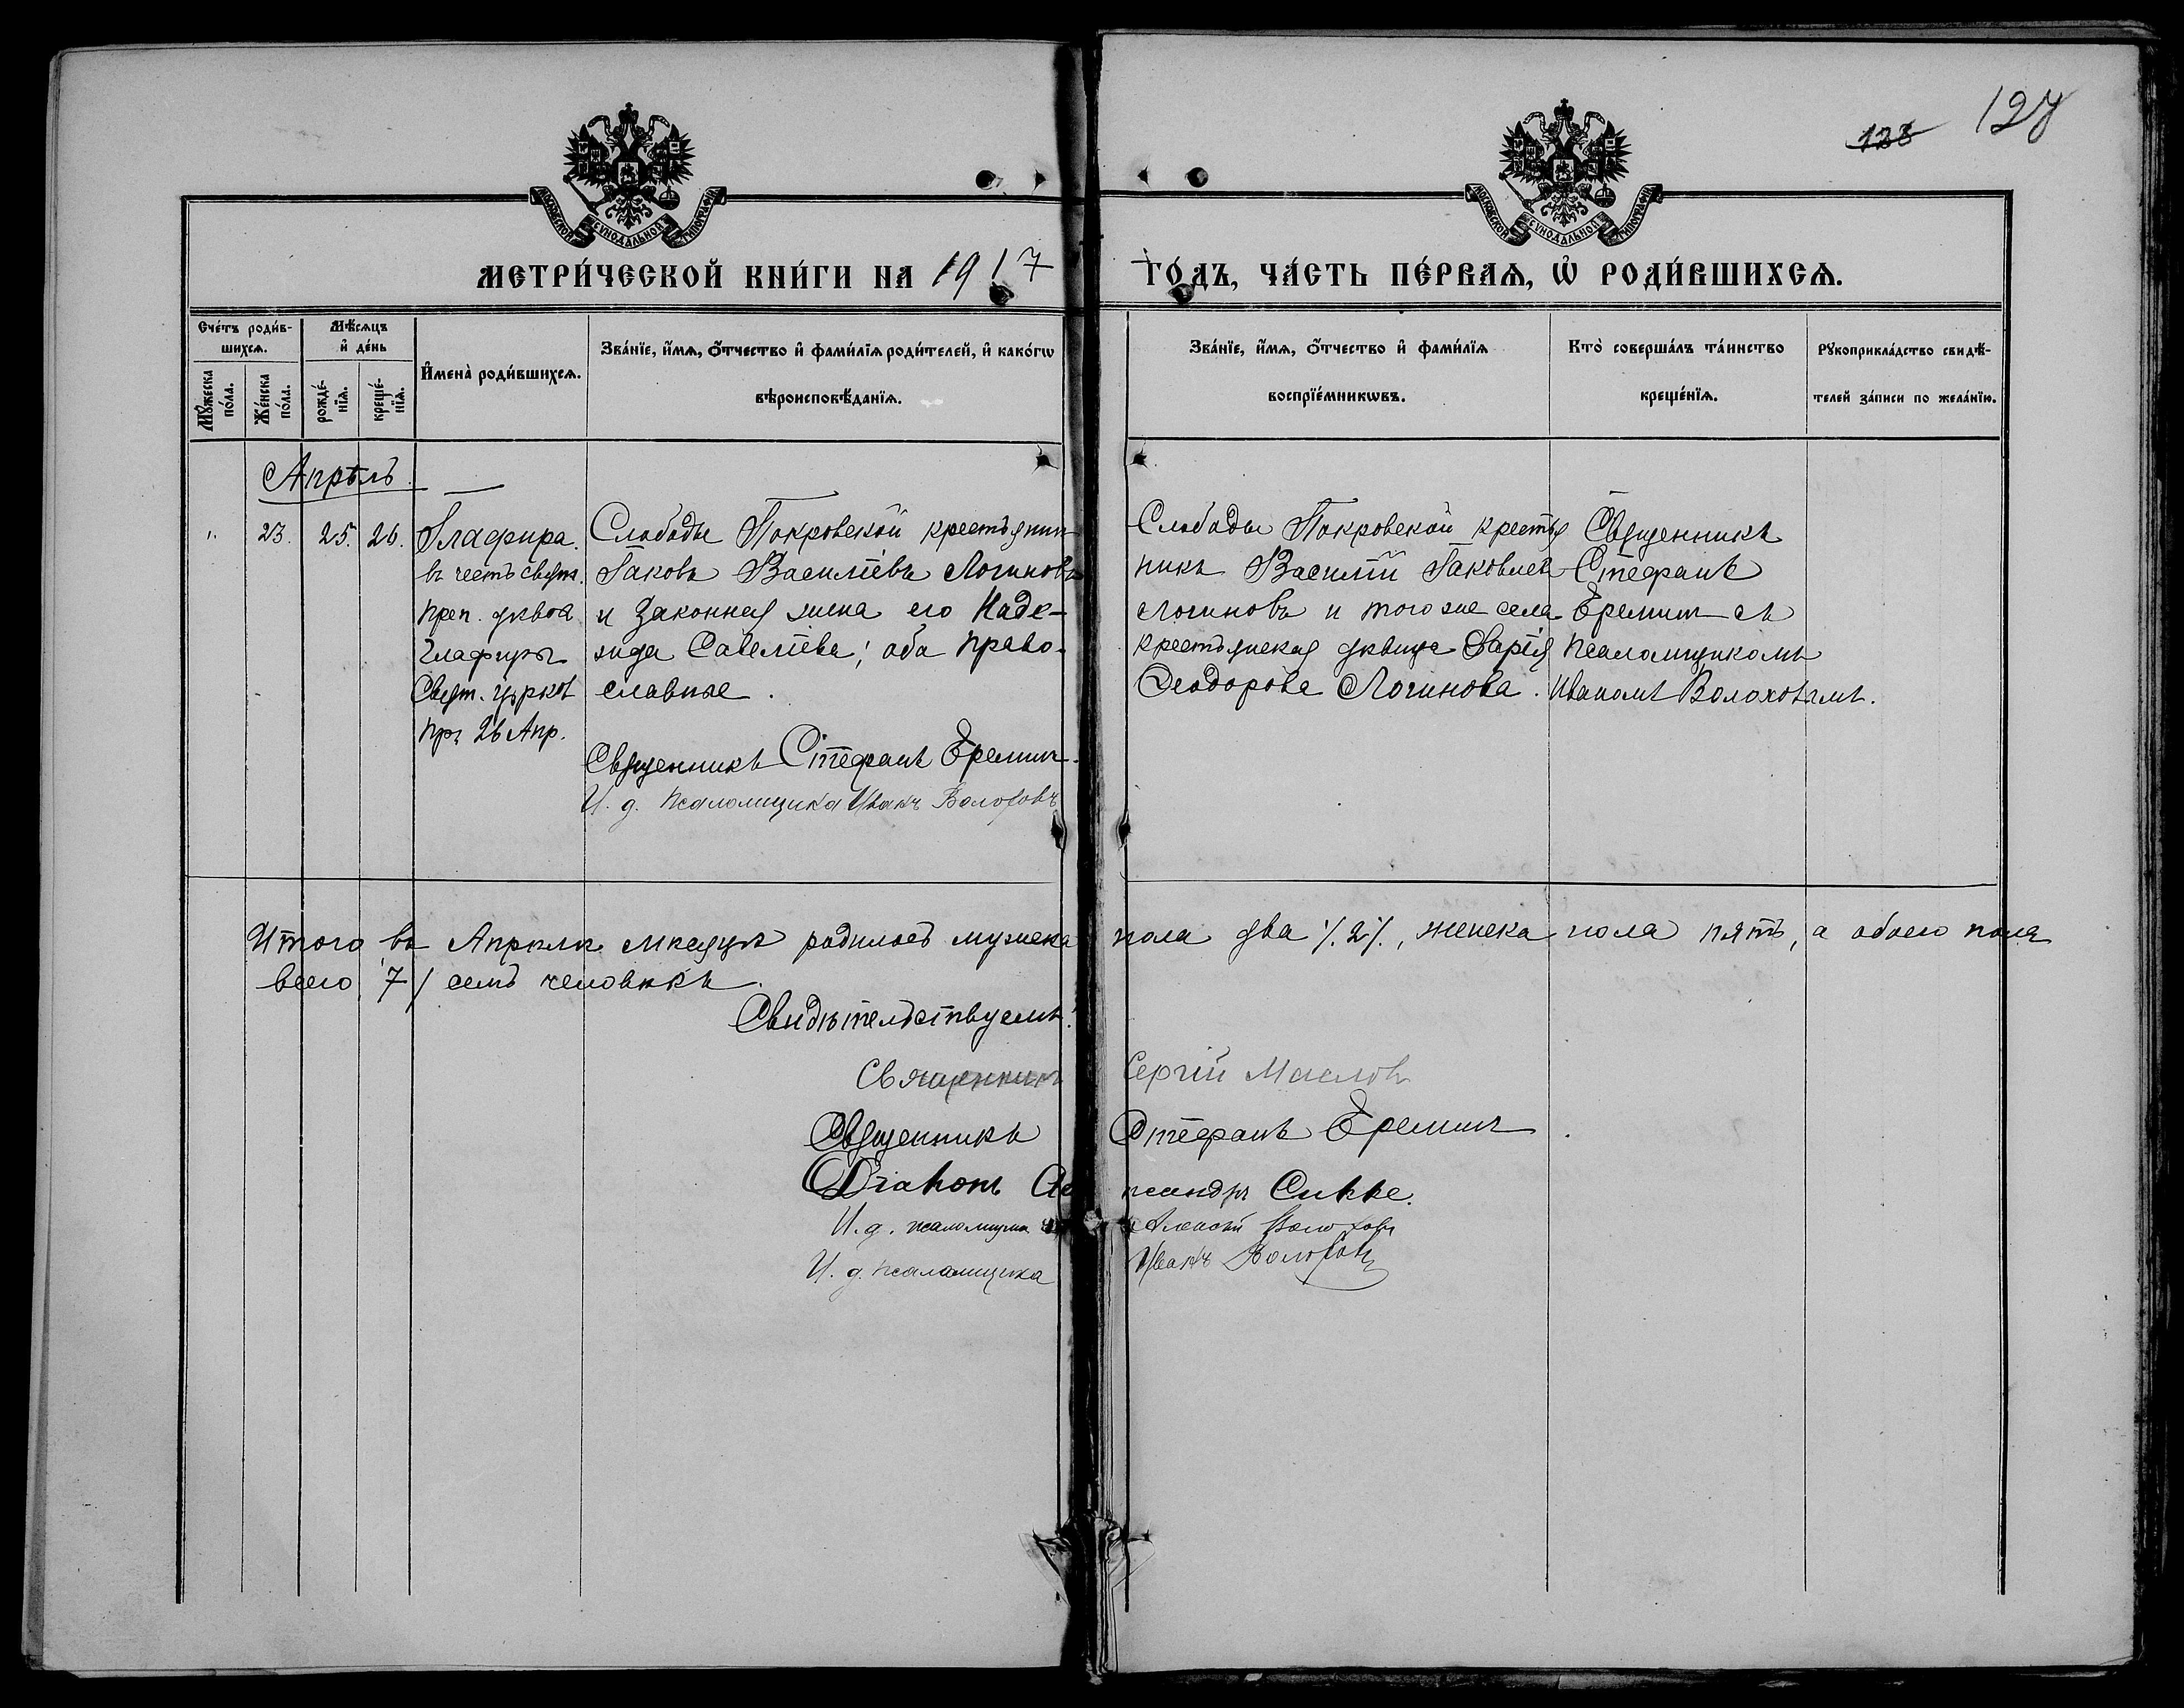 128
127
МОСКОВСКОЙ СѴНОДАЛЬНОЙ ТИПОГРАФІИ
МОСКОВСКОЙ СѴНОДАЛЬНОЙ ТИПОГРАФІИ
МЕТРИ́ЧЕСКОЙ КНИ́ГИ НА 1917 ГО́ДЪ, ЧА́СТЬ ПЕ́РВАѦ, Ѡ҆ РОДИ́ВШИХСѦ.
Сче́тъ роди́в-
шихсѧ.
Мꙋ́жеска
по́ла.
Же́нска
по́ла.
Мѣ́сѧцъ
и҆ де́нь
рожде́-
нїѧ.
креще́-
нїѧ.
И҆мена̀ роди́вшихсѧ.
Зва́нїе, и҆́мѧ, ѻ҆́тчество и҆ фами́лїѧ роди́телей, и҆ како́гѡ
вѣроисповѣ́данїѧ.
Зва́нїе, и҆́мѧ, ѻ҆́тчество и҆ фами́лїѧ
воспрїе́мникѡвъ.
Кто̀ соверша́лъ та́инство
креще́нїѧ.
Рꙋкоприкла́дство свидѣ́-
телей за́писи по жела́нїю.
Апрѣль.
23. 25. 26.
Глафира.
въ честь свят.
преп. дѣвой
Глафиры
Свят. церков
пр. 26 Апр.
Слободы Покровской крестьянин
Іаковъ Василіевъ Логиновъ
и законная жена его Наде-
жда Савеліева; оба право-
славные.
Священникъ Стефанъ Ереминъ.
И. д. псаломщика Иванъ Волоховъ
Слободы Покровской крестья
никъ Василій Іаковлев
Логиновъ и того же села
крестьянская дѣвица Дарія
Феодорова Логинова.
Священникъ
Стефанъ
Ереминъ съ
псаломщикомъ
Иваномъ Волоховымъ.
Итого въ Апрѣлѣ мѣсяцѣ родилось мужска пола два /.2/., женска пола пять, а обоего пола
всего 7/ семь человѣкъ.
Свидѣтельствуемъ:
Священникъ Сергій Масловъ
Священникъ Стефанъ Ереминъ.
Діаконъ Сикке.
И. д. псаломщика Алексѣй Волоховъ
И. д. псаломщика Иванъ Волоховъ